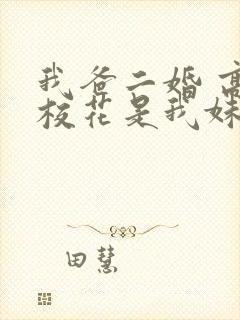 我爸二婚 高
校花是我妹
田慧